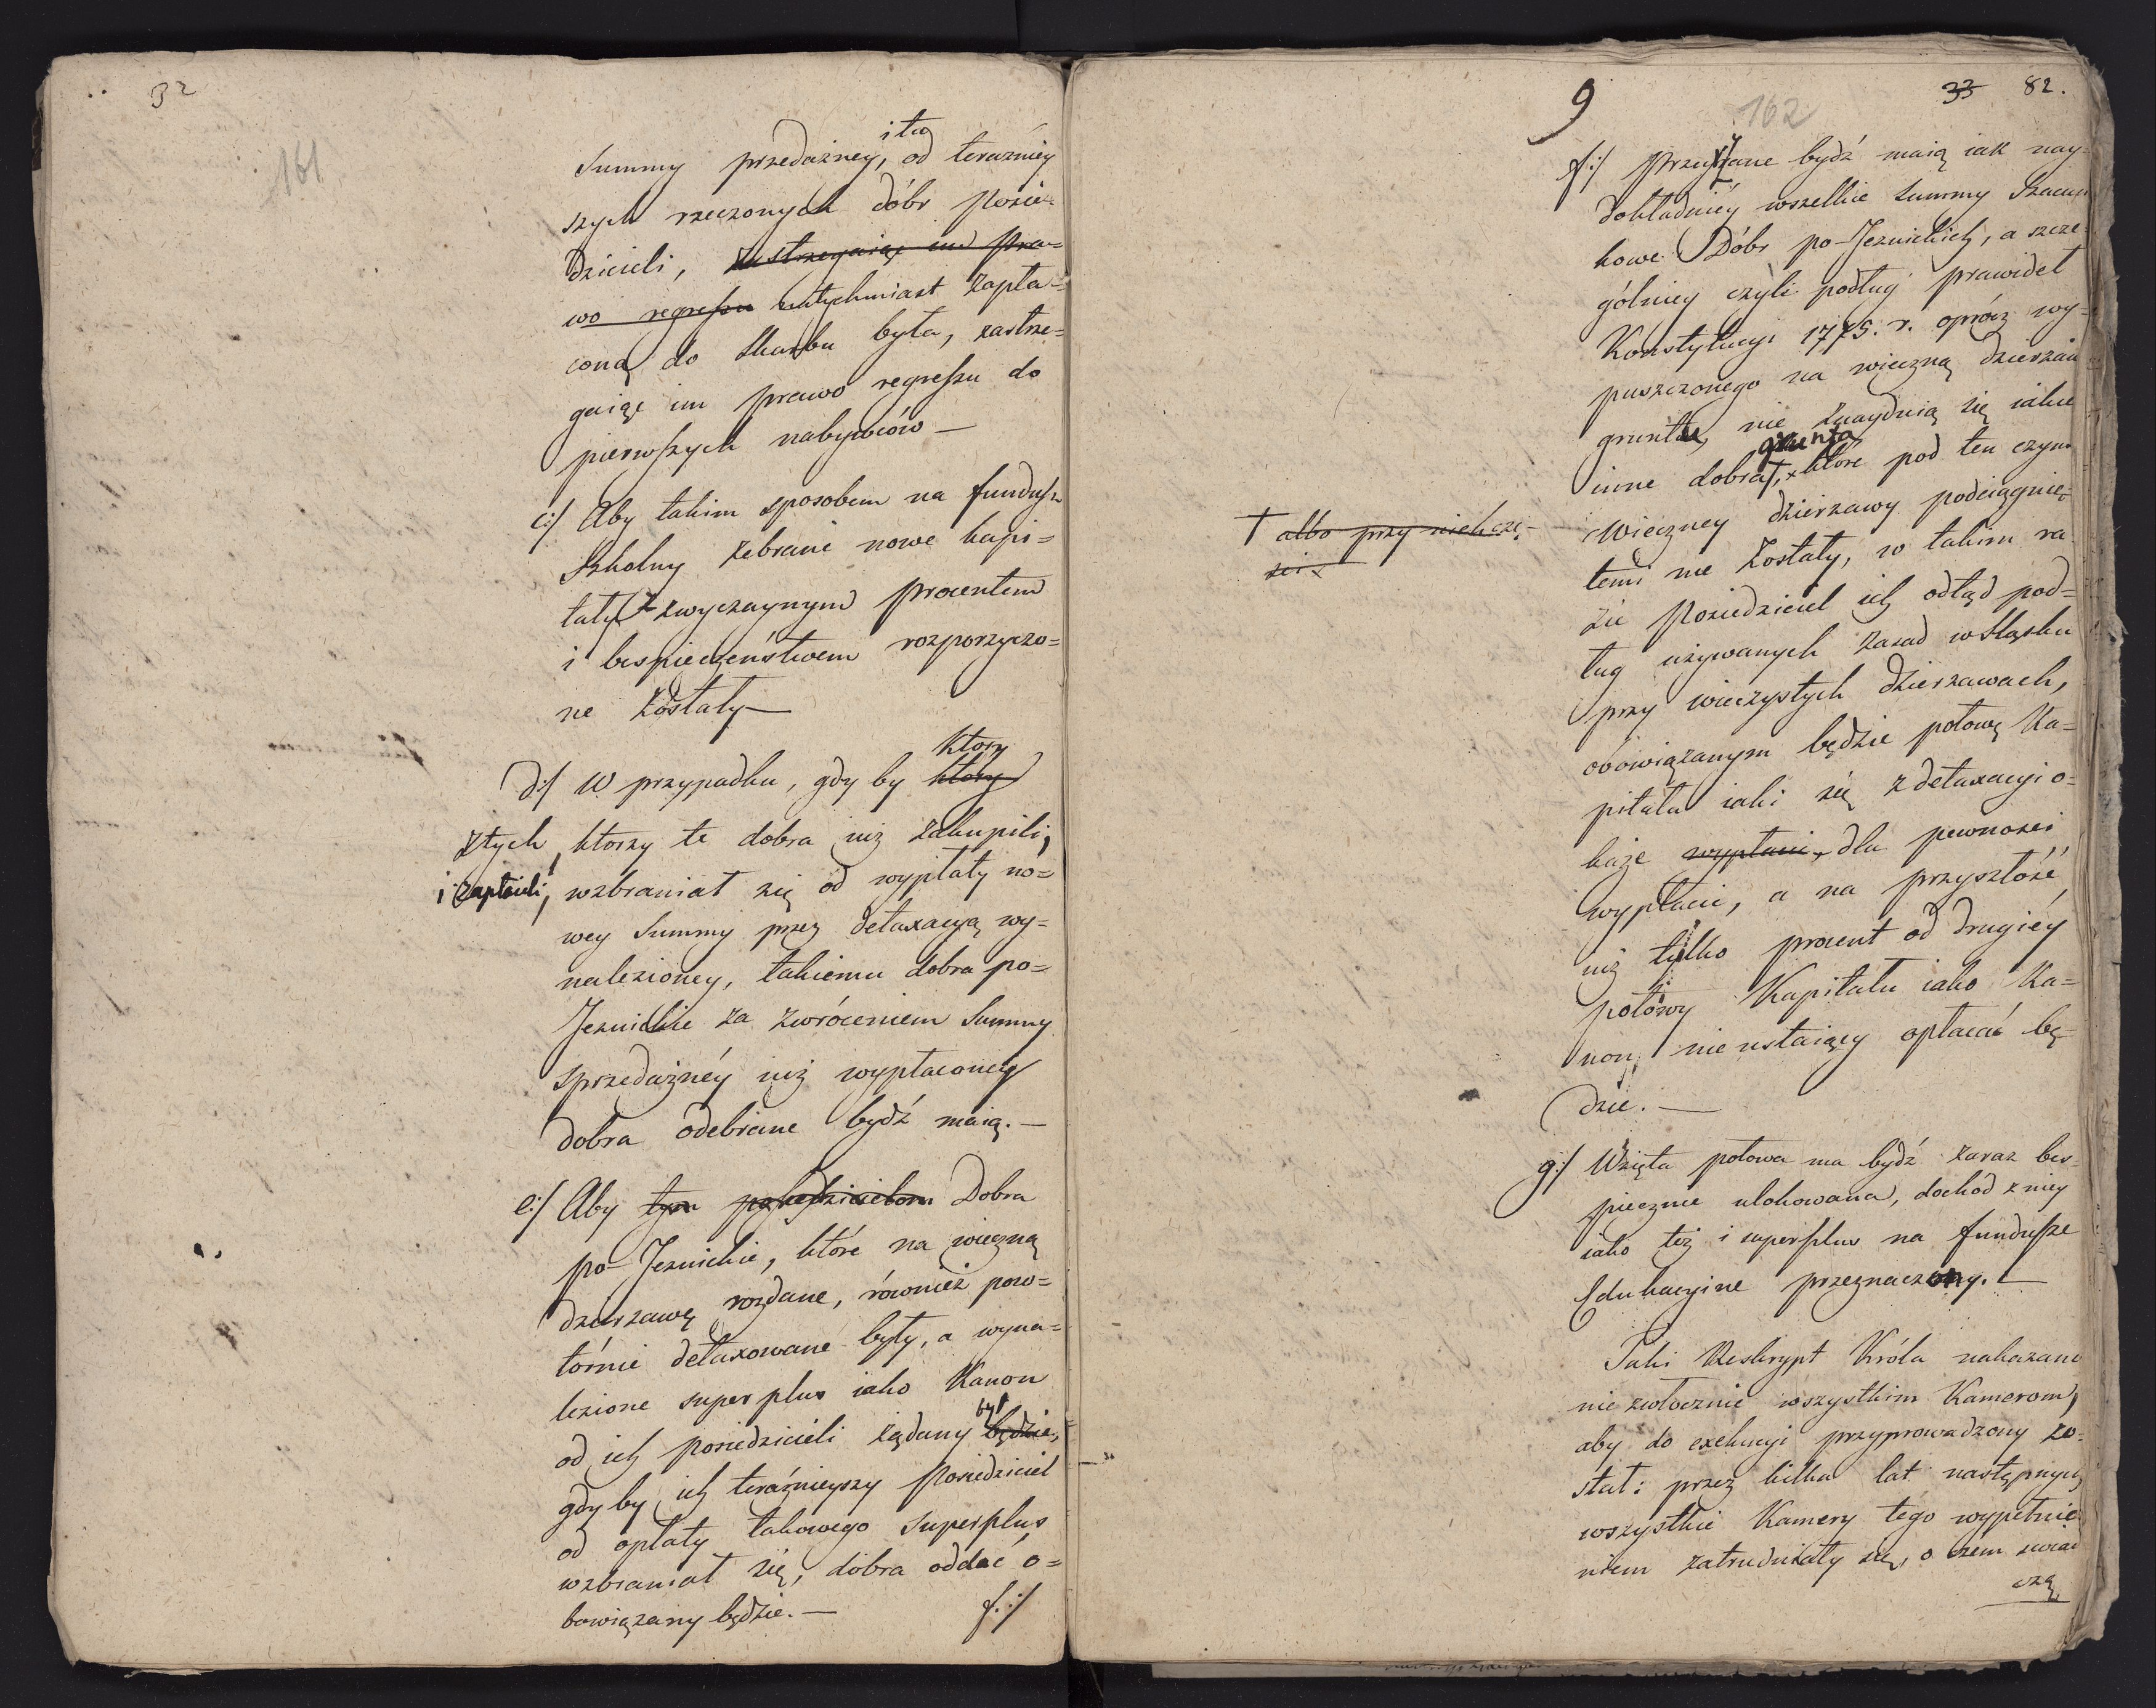 32
161
i ta
Summy przedażney, od teraźniey
szych rzeczonych dóbr Posie-
dzicieli, zastrzegaiąc im pra-
wo regressu natychmiast zapła-
coną do Skarbu była, zastrze-
gaiąc im prawo regressu do
pierwszych nabywców —
c:/ Aby takim sposobem na fundusz
Szkolny zebrane nowe kapi=
tały z zwyczaynym procentem
i bespieczeństwem rozporzyczo=
ne zostały —
ktory
d:/ W przypadku, gdy by ktory
z tych, ktorzy te dobra iuż zakupili,
i zapłacili, wzbraniał się od wypłaty no=
wey Summy przez detaxacyą wy=
nalezioney, takiemu dobra po=
Jezuickie za zwróceniem Summy
sprzedażnéy iuż wypłaconey
dobra odebrane bydź maią. —
e:/ Aby tym posiedzicielom Dobra
po-Jezuickie, które na wieczną
dzierzawę rozdane, również powo=
tórnie detaxowane były, a wyna=
lezione superplus iako Kanon
był
od ich posiedzicieli żądany będzie,
gdy by ich teraźnieyszy Posiedziciel
od opłaty takowego superplus
wzbraniał się, dobra oddać o=
bowiązany będzie. —
f:/
9
162
33 82.
f:/ Przeyrzane bydź maią iak nay
dokładniéy wszelkie Summy Szacun
kowe Dóbr po-Jezuickich, a szcze
gólniey czyli podług prawideł
Konstytucyi 1775. r. oprócz wy=
puszczonego na wieczną dzierzaw
gruntu, nie znaydują się iakie
grunta
inne dobra †, które pod ten czyn
† albo przy nich czę-
ści
wieczney dzierzawy podciągnię-
temi nie zostały, w takim ra
zie Posiedziciel ich odtąd pod=
ług używanych zasad w Sląsku
przy wieczystych dzierzawach,
obowiązanym będzie połowę Ka=
pitału iaki się z detaxacyi o=
każe wypłacić, dla pewności
wypłacić, a na przyszłość
iuż tylko procent od drugiéy
połowy Kapitału iako Ka=
non, nieustaiący opłacać bę-
dzie. —
g:/ Wzięta połowa ma bydź zaraz bes-
piecznie ulokowana, dochód z niey
iako też i superplus na fundusze
Edukacyine przeznaczony. —
Taki Reskrypt Króla nakazano
nie zwłocznie wszystkim Kamerom,
aby do exekucyi przyprowadzony zo=
stał: przez kilka lat następnych
wszystkie Kamery tego wypełnie
niem zatrudniały się, o czem świad
czą